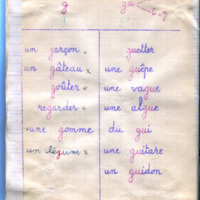 g
un garçon x
un gâteau x
goûter x
regarder x
une gomme x
un légume x
guetter
une guêpe
une vague
une algue
du gui
une guitare
un guidon